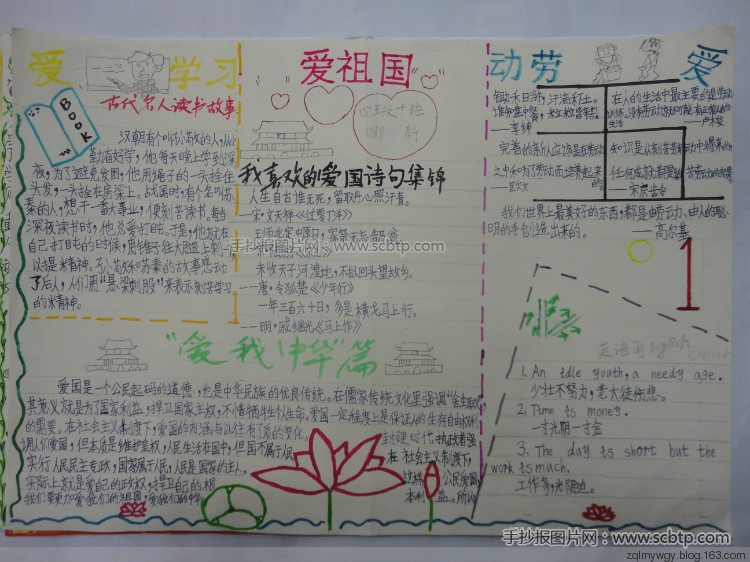 爱 学习
古代名人读书故事
BOOK
汉朝有个叫孙敬的人,从小
勤奋好学,他每天晚上学到深
夜,为了避免发困,他用绳子的一头拴住
头发,一头拴在房梁上。战国时,有个名叫苏
秦的人,想干一番大事业,便刻苦读书,每当
深夜读书时,他总爱打盹。于是,他就在
自己打盹的时候,用锥子往大腿上刺一下
以提米精神。孙敬和苏秦的故事感动
了后人,人们用"悬梁刺股"来表示刻苦学习
的米精神。
爱祖国
四年级十班
我喜欢的爱国诗句集锦
人生自古谁无死,留取丹心照汗青。
——宋·文天祥《过零丁洋》
王师北定中原日,家祭无忘告乃翁。
未收天子河湟地,不拟回头望故乡。
——唐·令狐楚《少年行》
一年三百六十日,多是横戈马上行。
——明·戚继光《马上作》
动劳 爱
锄禾日当午,汗滴禾下土。
谁知盘中餐,粒粒皆辛苦。
——李绅
在人的生活中最主要的是劳动
——卢梭
——宋庆龄
我们世界上最美好的东西,都是由劳动、由人的聪
明的手创造出来的。——高尔基
1
英语角English
1. An idle youth, a needy age.
少壮不努力,老大徒伤悲。
2. Time is money.
一寸光阴一寸金
3. The day is short but the
work is much.
工作多,光阴迫。
"爱我中华"篇
爱国是一个公民起码的道德,也是中华民族的优良传统。在儒家传统文化里强调"舍生取义"
其意义就是为了国家利益,捍卫国家主权,不惜牺牲个人生命。爱国一定程度上是保证人的生存自由权利
的需要。在社会主义制度下,爱国的内涵与以往有了质的变化。
调人们爱国,但本质是维护皇权,人民生活在国中,但国不属于人民
封建时代,执政者强
在社会主义制度下,
实行人民民主专政,国家属于人民,人民是国家的主人。
公民爱国
实际上就是爱自己的政权,捍卫自己的根
本利益。所以
我们要更加爱我们的祖国,爱我们的中华
手抄报图片网:www.scbtp.com
手抄报图片网:www.scbtp.com
zqlmywgy.blog.163.com